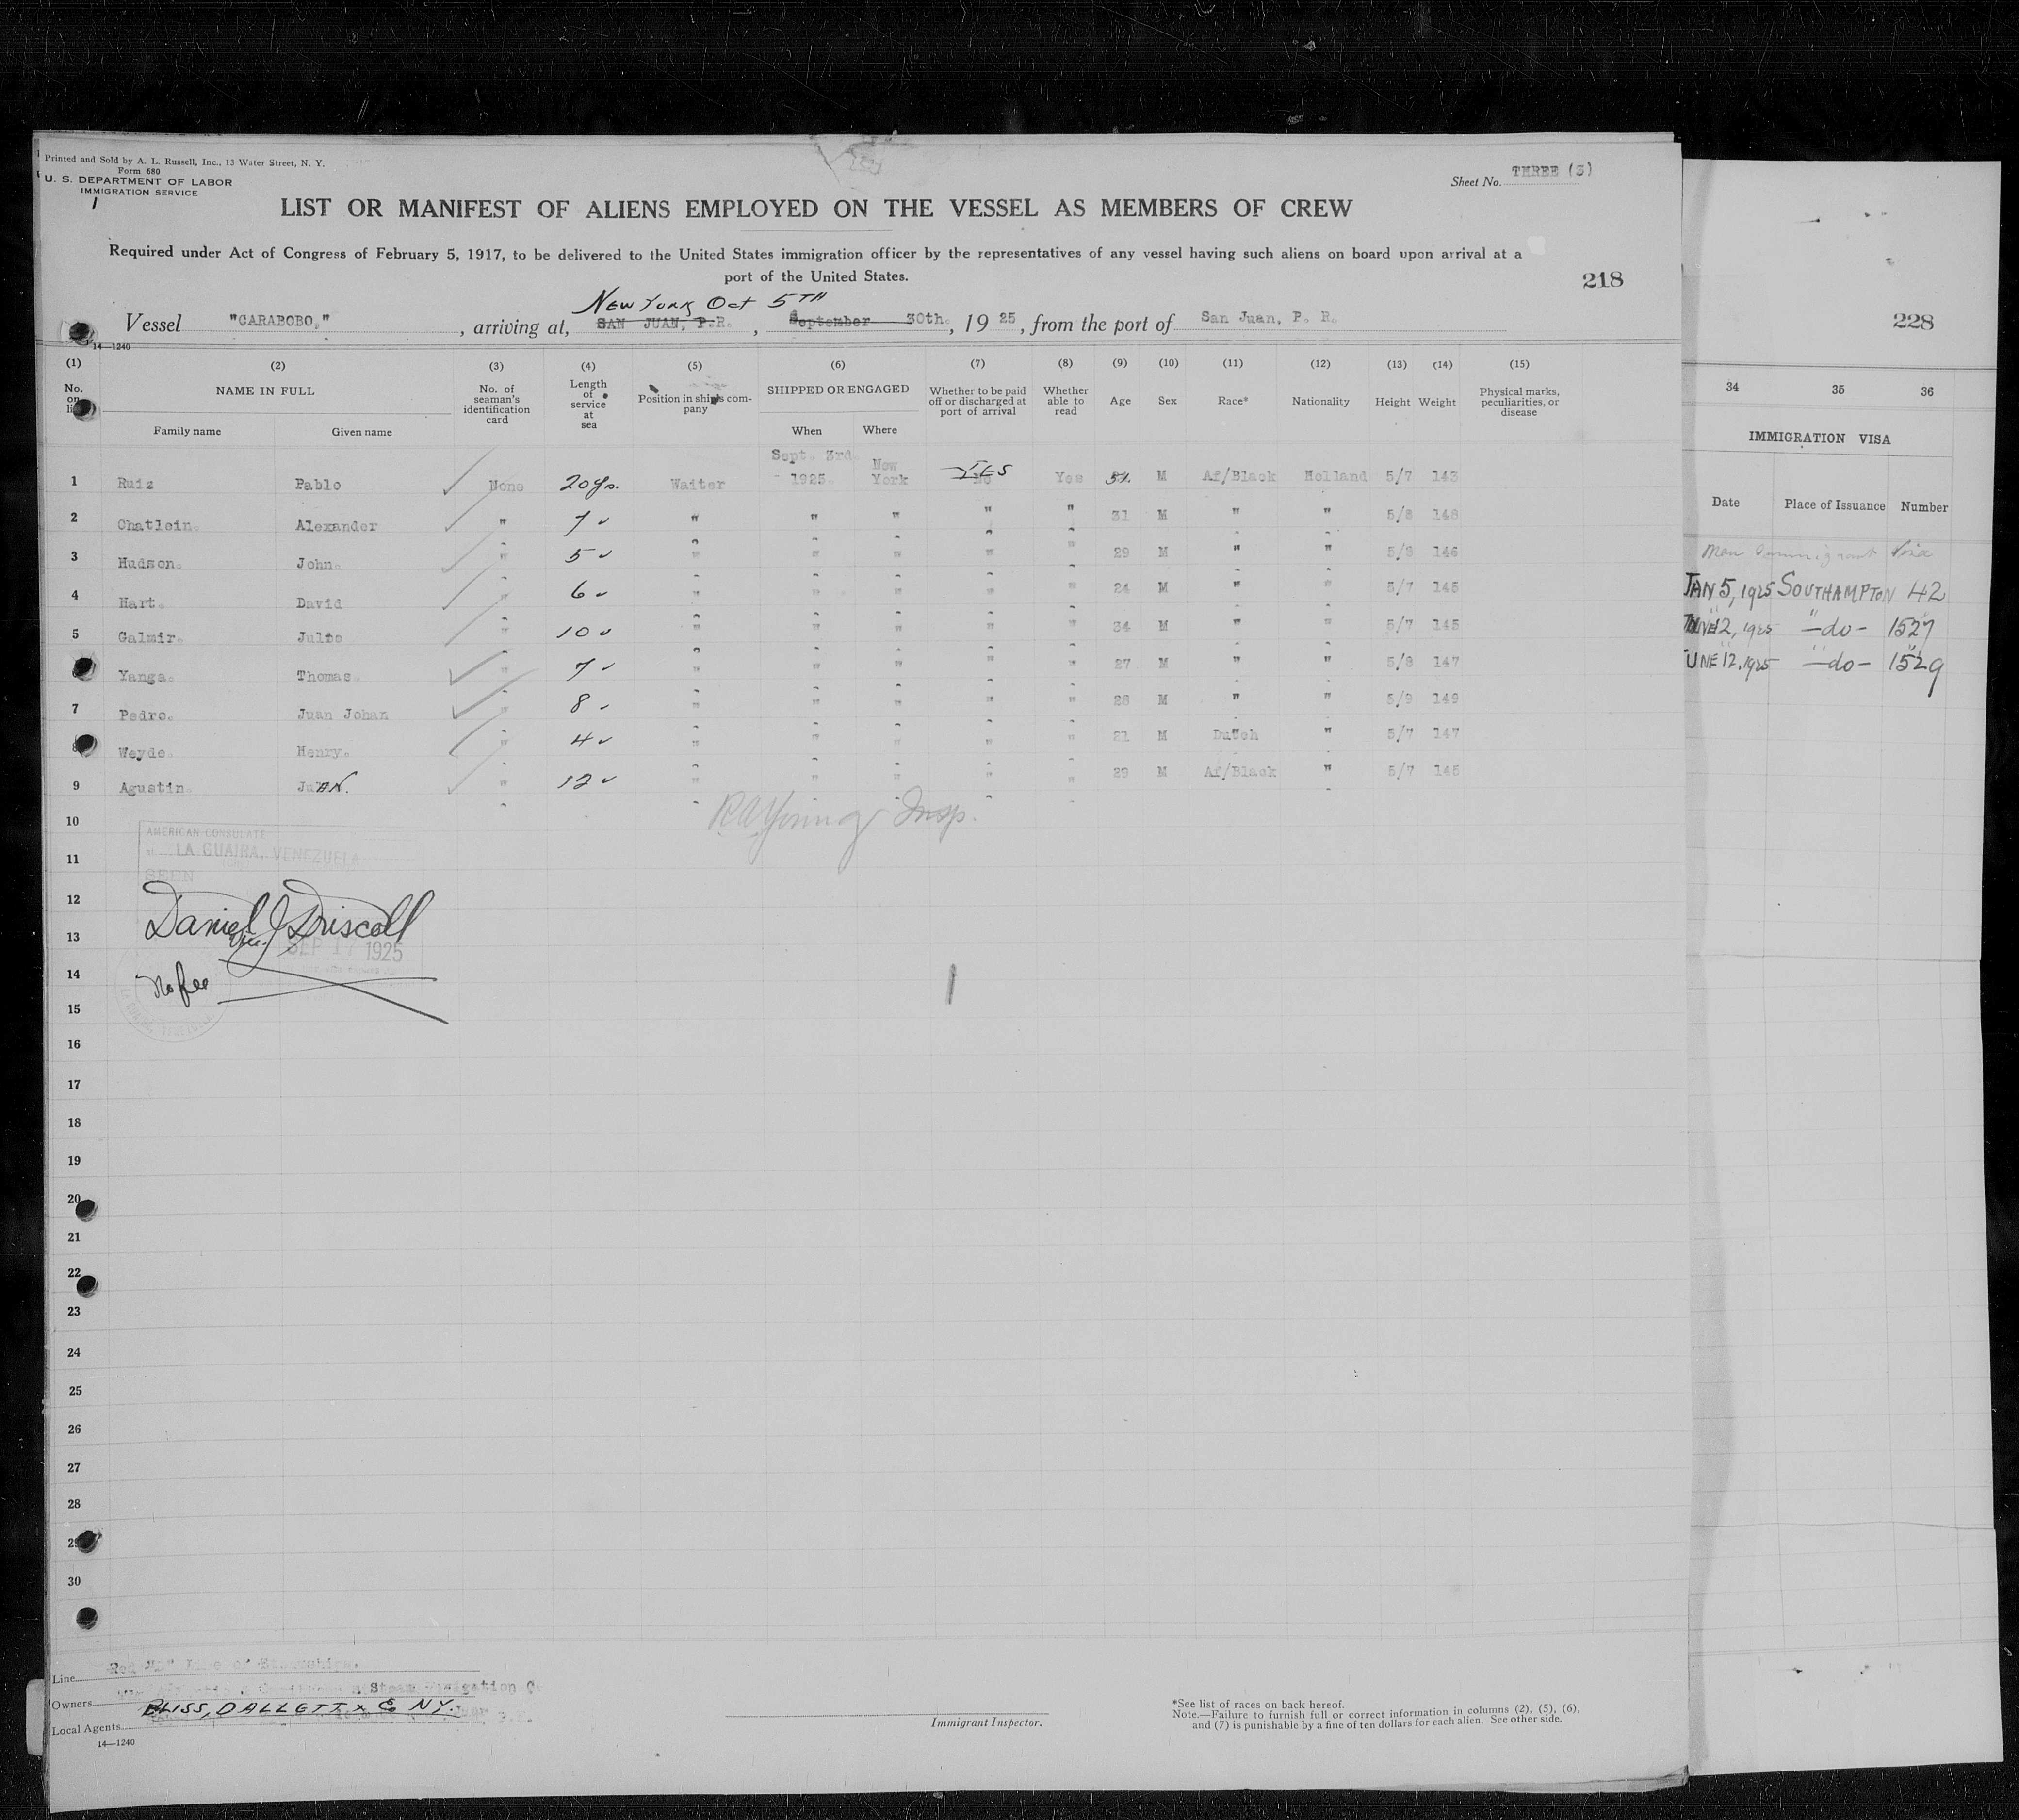 Printed and Sold by A. L. Russell, Inc., 13 Water Street, N. Y.
Form 680
U. S. DEPARTMENT OF LABOR
IMMIGRATION SERVICE
1
Sheet No. THREE (3)
LIST OR MANIFEST OF ALIENS EMPLOYED ON THE VESSEL AS MEMBERS OF CREW
Required under Act of Congress of February 5, 1917, to be delivered to the United States immigration officer by the representatives of any vessel having such aliens on board upon arrival at a
port of the United States.
218
NEW YORK Oct 5TH
Vessel "CARABOBO," , arriving at, SAN JUAN, P.R. , September 30th. , 1925, from the port of San Juan, P. R.
14—1240
(1) (2) (3) (4) (5) (6) (7) (8) (9) (10) (11) (12) (13) (14) (15)
No. on NAME IN FULL Family name Given name
No. of seaman's identification card
Length of service at sea
Position in ship's company
SHIPPED OR ENGAGED When Where
Whether to be paid off or discharged at port of arrival
Whether able to read
Age Sex Race* Nationality Height Weight
Physical marks, peculiarities, or disease
1 Ruiz Pablo None 20 yrs. Waiter Sept. 3rd. 1925. New York YES No Yes M Af/Black Holland 5/7 143
2 Chatlein. Alexander " 7 " " " " " 31 M " " 5/8 148
3 Hudson. John. " 5 " " " " " 29 M " " 5/8 146
4 Hart. David " 6 " " " " " 24 M " " 5/7 145
5 Galmir. Julio " 10 " " " " " 34 M " " 5/7 145
Yanga. Thomas. " 7 " " " " " 27 M " " 5/8 147
7 Pedro. Juan Johan " 8 " " " " " 28 M " " 5/9 149
8 Weyde. Henry. " 4 " " " " " 21 M Dutch " 5/7 147
9 Agustin. JuAN. " 12 " " " " " 29 M Af/Black " 5/7 145
R A Young Insp.
10
AMERICAN CONSULATE
at LA GUAIRA, VENEZUELA
11
SEEN
12
Daniel J Driscoll
13
Vice.
SEP 17 1925
14
No fee
15
16
17
18
19
20
21
22
23
24
25
26
27
28
29
30
Line Red "D" Line of Steamships.
Owners Steam Navigation Co
BLISS, DALLETT & Co NY.
Local Agents
14—1240
Immigrant Inspector.
*See list of races on back hereof.
Note.—Failure to furnish full or correct information in columns (2), (5), (6),
and (7) is punishable by a fine of ten dollars for each alien. See other side.
228
34 35 36
IMMIGRATION VISA
Date Place of Issuance Number
Non Immigrant Visa
JAN 5, 1925 SOUTHAMPTON 42
JUNE 12, 1925 —do— 1527
JUNE 12, 1925 —do— 1529